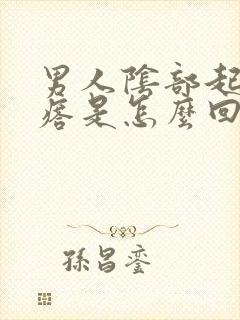 男人陰部起
痞是怎麼回
孫昌鑾